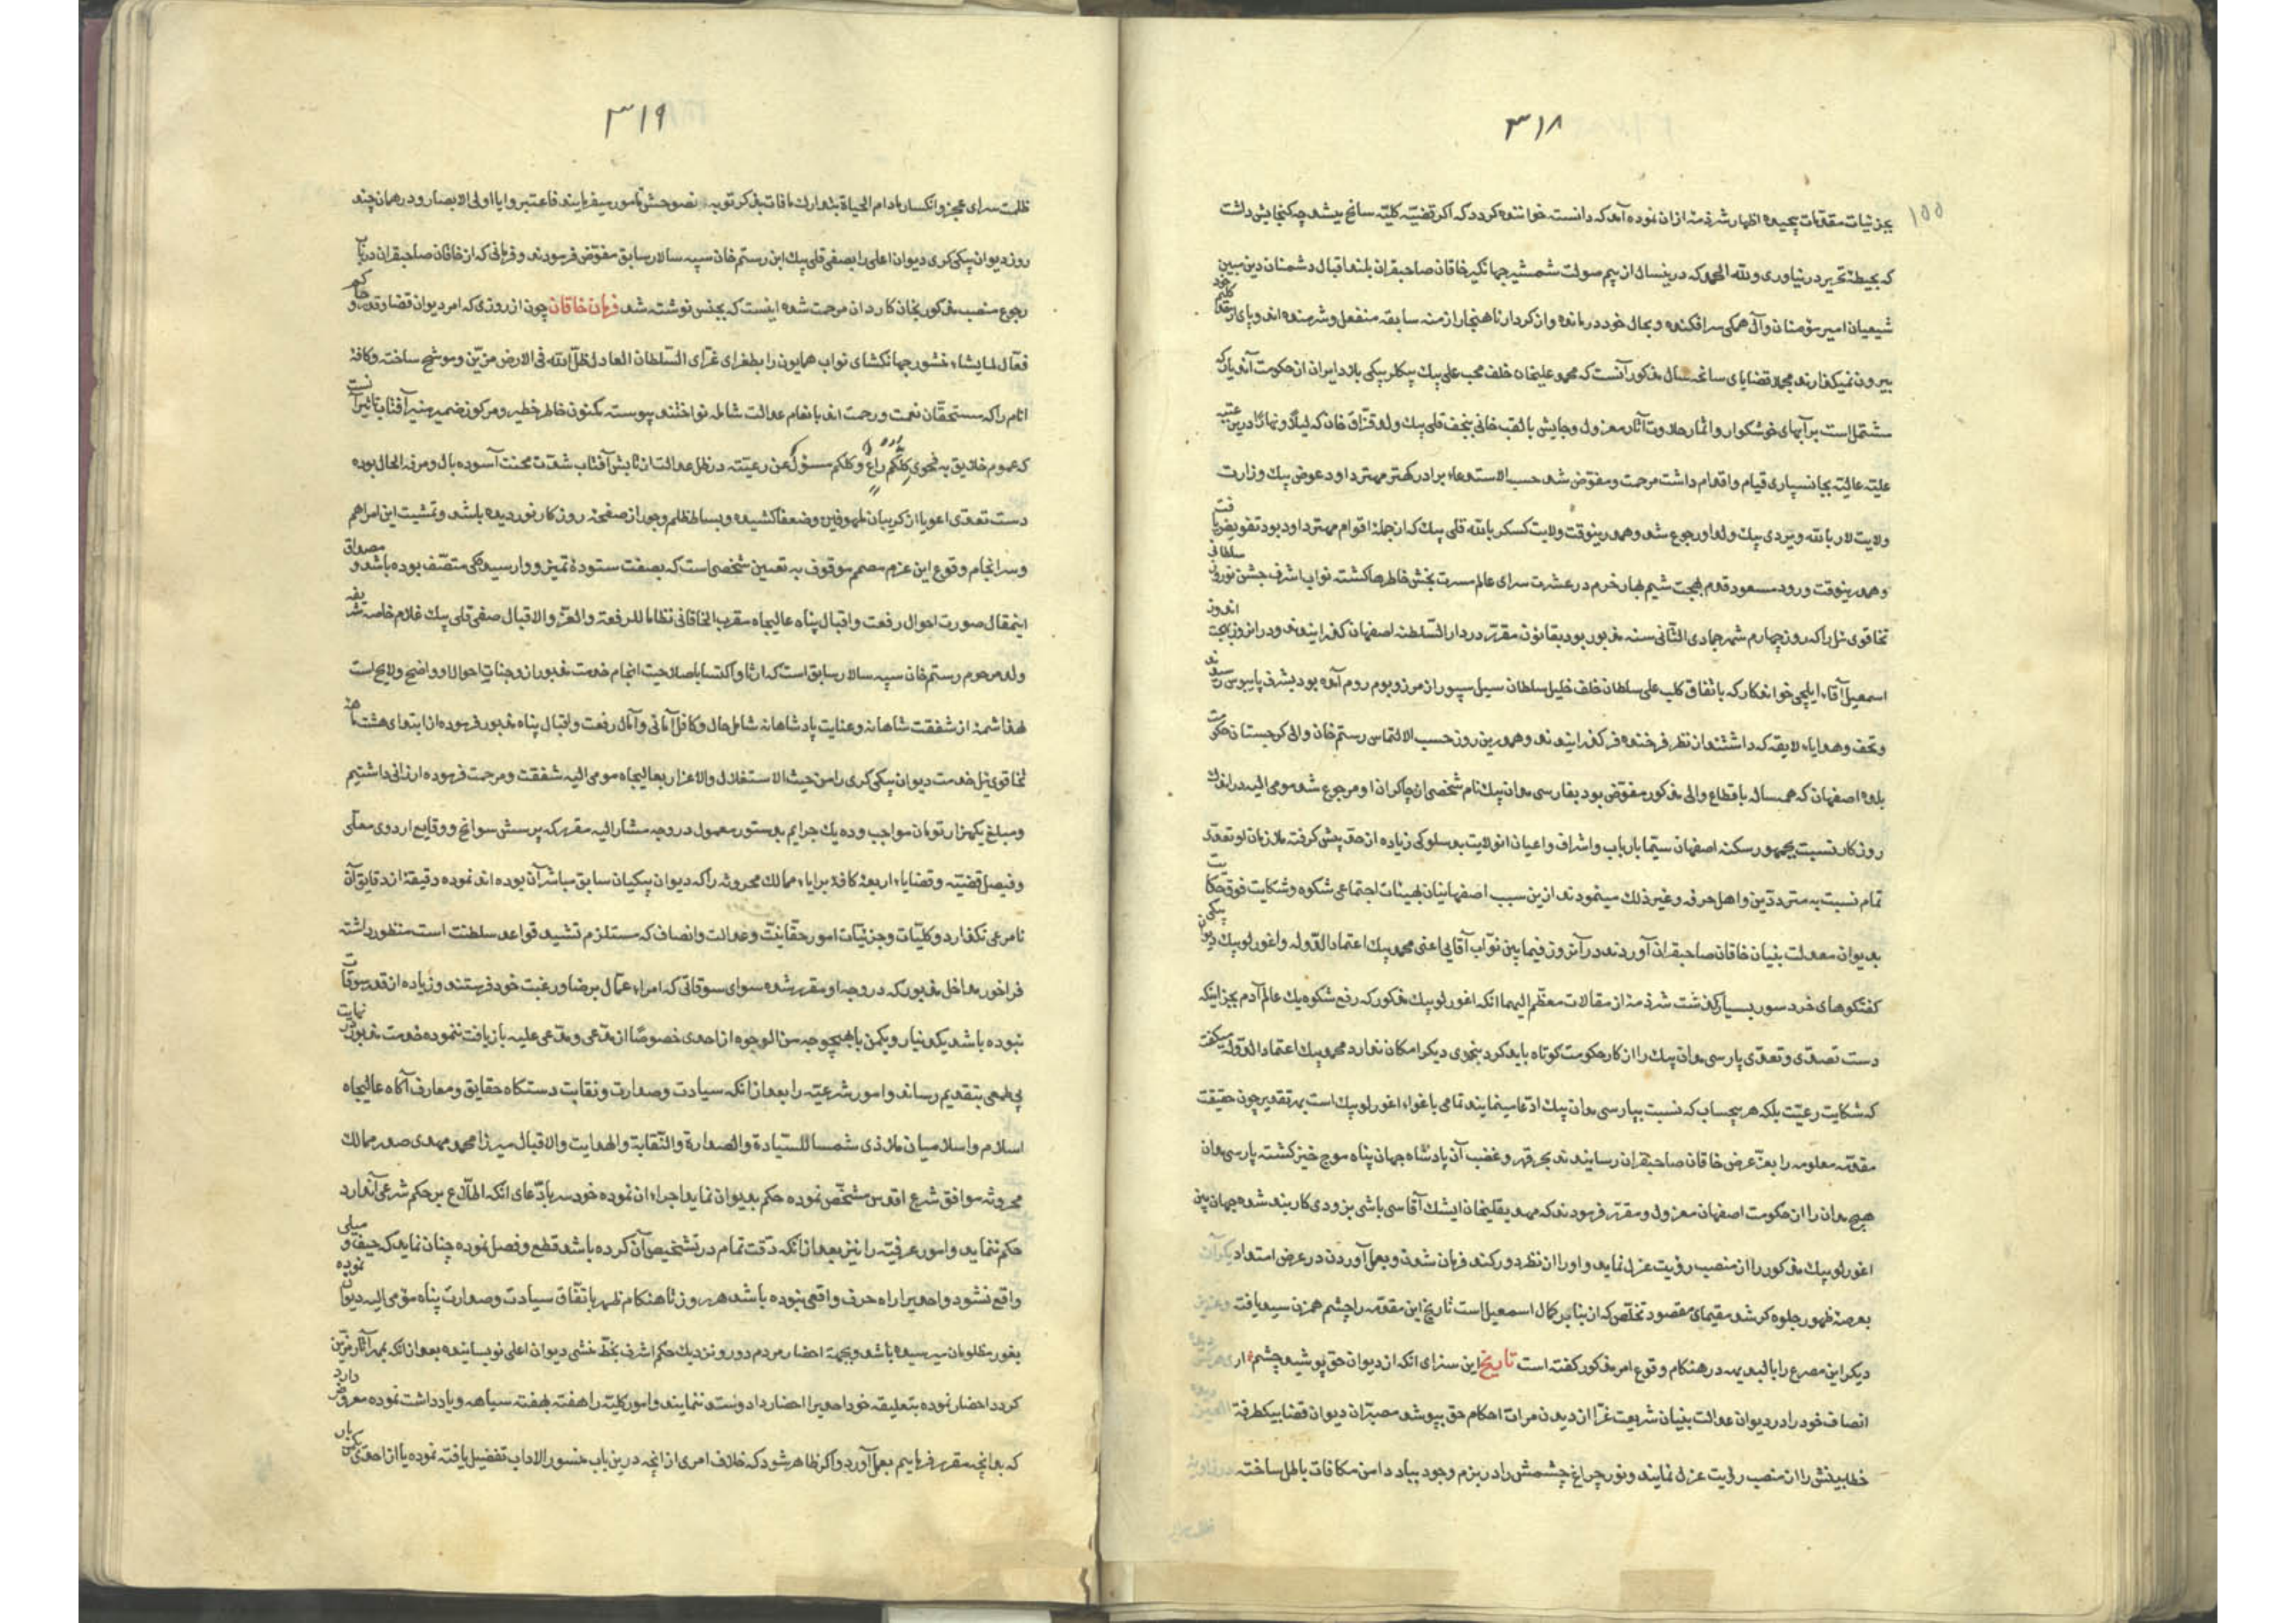 ۳۱۸
۱۵۵
بجزئیات مقدمات پیچیده اظهار شرذمهٔ ازان نموده آمد که دانسته خواننده کردد که اکر قضیّه کلیّه سانح میشد چه کنجایش داشت
که بحیطهٔ تحریر در نیاوری ولله الحمد که درینسال از بیم سولت شمشیر جهانکیر خاقان صاحبقران بلند اقبال دشمنان دین مبین
شیعیان امیر مؤمنان وآل همکی سرافکنده و بحال خود درمانده و از کردار ناهنجار ازمنه سابقه منفعل و شرمنده اند و پای از کلیم خود
بیرون نمیکذارند مجملا قضایای سانحه سال مذکور آنست که محمد علیخان خلف محب علی بیك بیکلربیکی بلاد ایران از حکومت آندیار که
مشتمل است بر آبهای خوشکوار و اثمار حلاوت آثار معزول و جایش با لقب خانی بنجف قلی بیك ولد قزاق خان که لیلاً و نهاراً درین عتبه
علیّه عالیّه بجانسپاری قیام واقدام داشت مرحمت و مفوّض شد حسب الاستدعاء برادر کهتر مهتر داود عوض بیك وزارت
ولایت لار بالله ویردی بیك ولد او رجوع شد و همدرینوقت ولایت کسکر بالله قلی بیك که از جملهٔ اقوام مهتر داود بود تفویض یافت
و همدرینوقت ورود مسعود قدوم بهجت شیم بهار خرم در عشرت سرای عالم مسرت بخش خاطرها کشته نواب اشرف جشن نوروز سلطانی
تخاقوی ئیل را که روز چهارم شهر جمادی الثانی سنه مذبور بود بقانون مقرّر در دار السّلطنه اصفهان کذرانیدند و درانروز بهجت اندوز
اسمعیل آقاء ایلچی خواندکار که باتفاق کلب علی سلطان خلف خلیل سلطان سیل سپور از مرز و بوم روم آمده بود بشرف پایبوس رسیدند
و تحف و هدایاء لایقه که داشتند از نظر فرخنده فر کذرانیدند و همدرین روز حسب الالتماس رستم خان والی کرجستان حکومت
بلده اصفهان که همساله باقطاع والی مذکور مفوّض بود بفارسی مدان بیك نام شخصی از چاکران او مرجوع شد مومی الیه در اندك
روزکار نسبت بجمهور سکنه اصفهان سیّما بارباب واشراف واعیان انولایت بدسلوکی زیاده از حد پیش کرفته ملازمان او تعدّی
تمام نسبت به متردّدین و اهل حرفه و غیر ذلك مینمودند ازین سبب اصفهانیان بهیئات اجتماعی شکوه و شکایت فوق حکایت
بدیوان معدلت بنیان خاقان صاحبقران آوردند در آنروز فیما بین نوّاب آقایی اعنی محمد بیك اعتماد الدّوله واغورلو بیك دیوان بیکی
کفتکوهای خرد سور بسیار کذشت شرذمهٔ از مقالات معظّم الیهما انکه اغورلو بیك مذکور که رفع شکوه یك عالم آدم بجز اینکه
دست تصدی و تعدّی پارسی مدان بیك را از کار حکومت کوتاه باید کرد بنحوی دیکر امکان ندارد محمد بیك اعتماد الدّوله میکفت
که شکایت رعیّت بلکه هر بیحساب که نسبت بپارسی مدان بیك ادّعا مینمایند تمامی باغواء اغورلو بیك است بهر تقدیر چون حقیقت
مقدّمه معلومه را بعزّ عرض خاقان صاحبقران رسانیدند بحر قهر و غضب آن پادشاه جهان پناه موج خیز کشته پارسی مدان
هیچ مدان را از حکومت اصفهان معزول و مقرّر فرمودند که مهدیقلیخان ایشك آقاسی باشی بزودی کاربند شده جهان بین
اغورلو بیك مذکور را از منصب رؤیت عزل نماید و او را از نظر دور کند فرمان شدن و بعمل آوردن در عرض استعداد
بعرصهٔ ظهور جلوه کر شد مقیمای مقصود تخلّص که از بنایر کمال اسمعیل است تاریخ این مقدّمه را چشم همزن سید یافته
دیکر این مصرع را بالبدیهه در هنکام وقوع امر مذکور کفته است تاریخ این سزای انکه از دیوان حق پوشید چشم ار
انصاف خود را در دیوان عدالت بنیان شریعت غرّا از دیدن مرات احکام حق بپوشد مصبّران دیوان قضا بیکطرفة
خطا بینش را از منصب رؤیت عزل نمایند و نور چراغ چشمش را در بزم وجود بباد دامن مکافات باطل ساخته
۳۱۹
ظلمت سرای عجز و انکسار مادام الحیاة بتدارك مافات بذکر توبه نصوحش مامور میفرمایند فاعتبروا یا اولی الابصار و در همان چند
روز دیوان بیکی کری دیوان اعلی را بصفی قلی بیك ابن رستم خان سپه سالار سابق مفوّض فرمودند و فرمانی که از خاقان صاحبقران درباب
رجوع منصب مذکور بخان کاردان مرحمت شده اینست که بجنس نوشته شد فرمان خاقان چون از روزی که امر دیوان قضا و قدر و حاکم
فعّال لمایشاء منشور جهانکشای نواب همایون را بطغرای غرّای السّلطان العادل ظلّ الله فی الارض مزیّن و موشح ساخته و کافهٔ
انام را که مستحقّان نعمت و رحمت اند بانعام عدالت شامله نواختند پیوسته مکنون خاطر خطیر و مرکوز ضمیر منیر آفتاب تاثیر آنست
که عموم خلایق به فحوی کلّکم راع و کلکم مسئول عن رعیته در ظل عدالت از تابش آفتاب شدت محنت آسوده بال و مرفه الحال بوده
دست تعدّی اعویا از کریبان ملهوفین وضعفا کشیده و بساط ظلم و جور از صفحهٔ روزکار نوردیده باشد و تمشیت این امر اهم
و سرانجام و وقوع این عزم مصمم موقوف به تعیین شخصی است که بصفت ستودهٔ تمیز و وارسیدکی متصّف بوده باشد و مصداق
اینمقال صورت احوال رفعت و اقبال پناه عالیجاه مقرب الخاقانی نظاما للرفعة والعزّ والاقبال صفی قلی بیك غلام خاصه شریفه
ولد مرحوم رستم خان سپه سالار سابق است که ارثا و اکتسابا صلاحیت انجام خدمت مذبور از وجنات احوال او واضح و لایح است
لهذا شمهٔ از شفقت شاهانه و عنایت پادشاهانه شامل حال و کافل آمانی و آمال رفعت و اقبال پناه مذبور فرموده از ابتدای هشتماهه
تخاقوی ئیل خدمت دیوان بیکی کری را من حیث الاستقلال والاعزاز بعالیجاه مومی الیه شفقت و مرحمت فرموده ارزانی داشتیم
و مبلغ یکهزار تومان مواجب و ده یك جرایم بدستور معمول در وجه مشارالیه مقرر که پرسش سوانح و وقایع اردوی معلّی
و فیصل قضیّه و قضایاء اربعهٔ کافهٔ برایاء ممالك محروثه را که دیوان بیکیان سابق مباشر آن بوده اند نموده دقیقهٔ از دقایق آن
نامرعی نکذارد و کلیّات و جزئیات امور حقانیّت و عدالت و انصاف که مستلزم تشیید قواعد سلطنت است منظور داشته
فراخور مداخل مذبور که در وجه او مقرر شده سوای سوقاتی که امراء عمّال برضا و رغبت خود فرستند و زیاده از قدر سوقات
نبوده باشد یکدینار و یکمن باهیچوجه من الوجوه از احدی خصوصًا از مدّعی و مدّعی علیه بازیافت ننموده خدمت مذبور در نهایت
بی طمعی بتقدیم رساند و امور شرعیّه را بعد ازانکه سیادت و صدارت و نقابت دستکاه حقایق و معارف آکاه عالیجاه
اسلام و اسلامیان ملاذی شمسا للسّیادة والصدارة والنّقابة والهدایت والاقبال میرزا محمد مهدی صدر ممالك
محروثه موافق شرع اقدس مشخّص نموده حکم بدیوان نماید اجراء ان نموده خود سر بادّعای انکه اطّلاع بر حکم شرعی آندارد
حکم ننماید و امور عرفیّه را نیز بعد ازانکه دّقت تمام در تشخیص آن کرده باشد قطع و فصل نموده چنان نماید که حیف و میلی
واقع نشود و احدیرا راه حرف واقعی نبوده باشد هر روز تا هنکام ظهر باتفّاق سیادت و صدارت پناه مؤمی الیه دیوان نموده
بغور مظلومان میرسیده باشد و بجهة احضار مردم دور و نزدیك حکم اشرف بخطّ منشی دیوان اعلی نویسانیده بعد ازانکه بمهر آثار مزیّن
کردد احضار نموده بتعلیقه خود احدیرا احضار داد و ستد ننمایند و امور کلیّه را هفته بهفته سیاهه و یادداشت نموده معروض دارد
که بدانچه مقرر فرماییم بعمل آورد و اکر ظاهر شود که خلاف امری از انچه درین باب منسور الاداب تفضیل یافته نموده یا از احدی